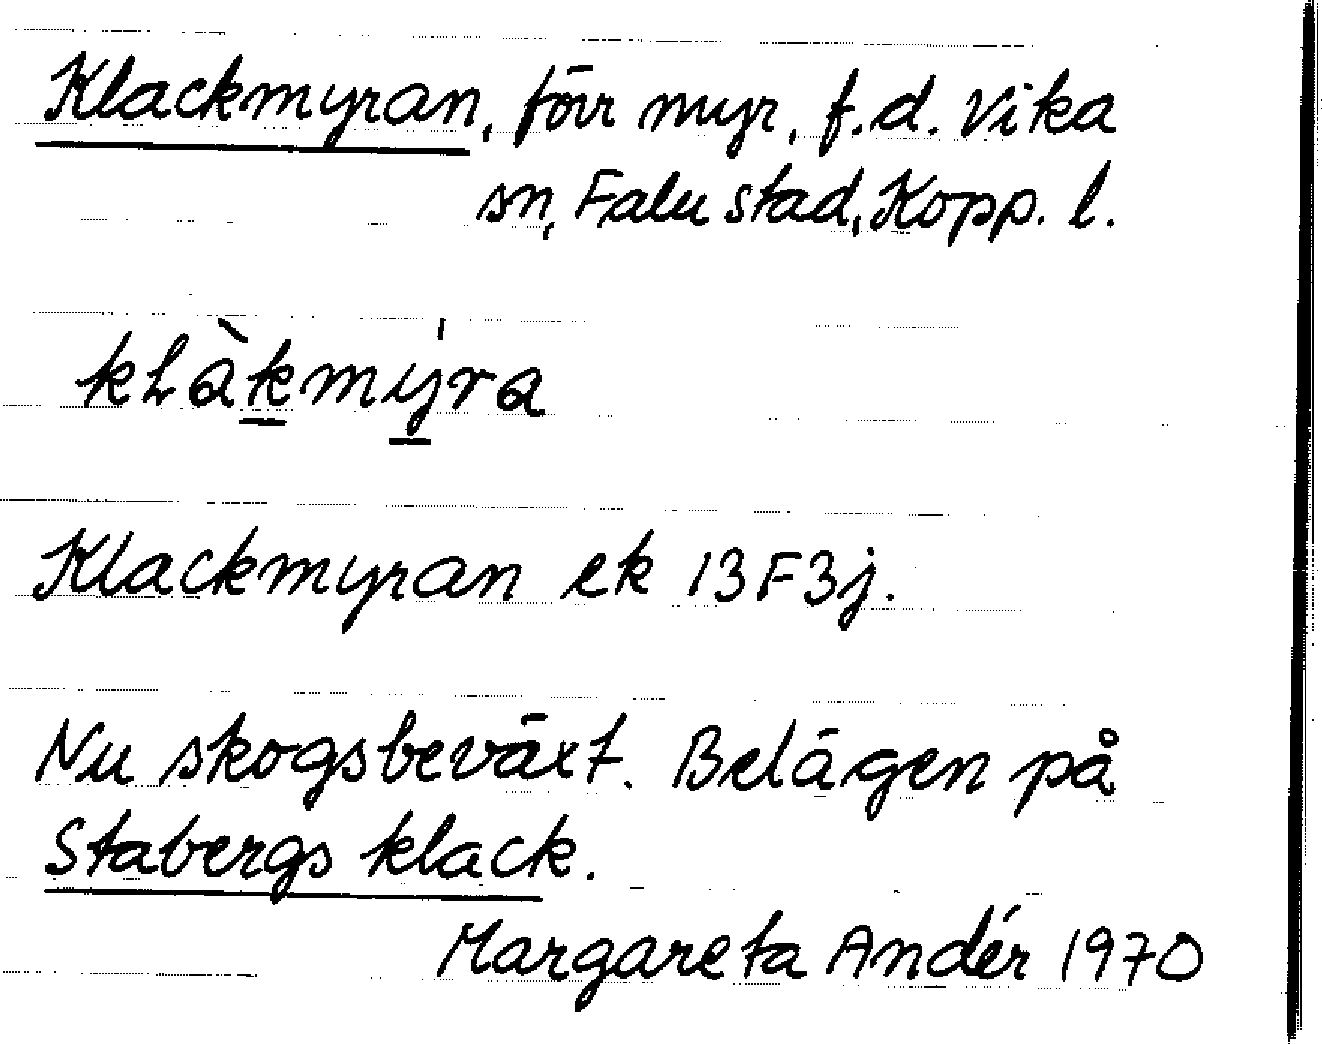 Klackmyran, förr myr, f.d. Vika
sn, Falu stad, Kopp. l.
kLàkmýra
Klackmyran ek 13F3j.
Nu skogsbeväxt. Belägen på
Stabergs klack.
Margareta Andér 1970